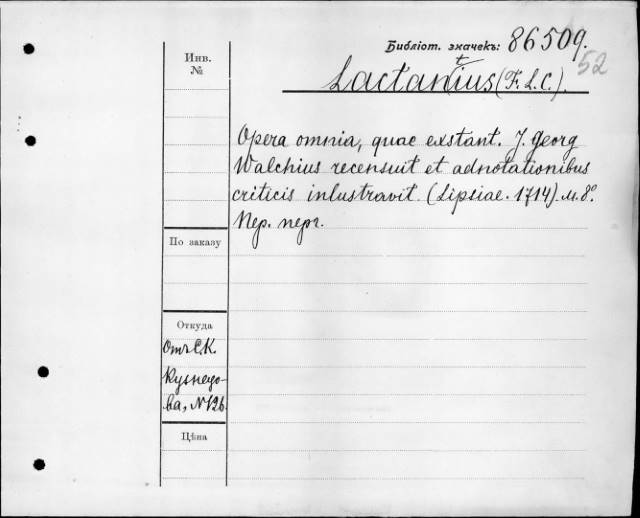 Библіот. значекъ: 86509.
52
Lactantius (F. L. C.).
Инв.
№
Opera omnia, quae exstant. J. Georg
Walchius recensuit et adnotationibus
criticis inlustravit. (Lipsiae. 1714). м. 8º.
Пер. перг.
По заказу
Откуда
Отъ С. К.
Кузнецо-
ва, № 126
Цѣна